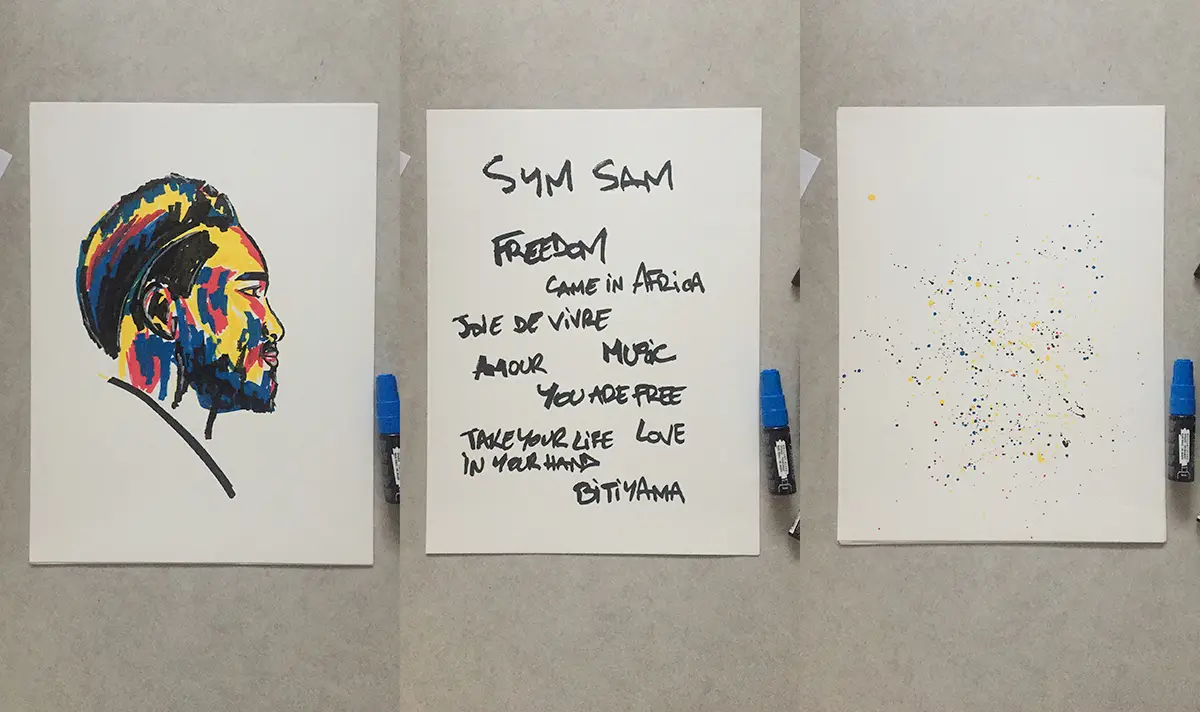 SYM SAM
FREEDOM
CAME IN AFRICA
JOIE DE VIVRE
AMOUR MUSIC
YOU ARE FREE
TAKE YOUR LIFE LOVE
IN YOUR HAND
BITIYAMA